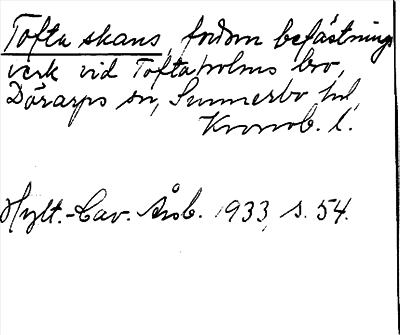 Tofta skans, fordom befästnings
verk vid Toftaholms bro,
Dörarps sn, Sunnerbo hd,
Kronob. l.
Hylt.-Cav. Årsb. 1933, s. 54.